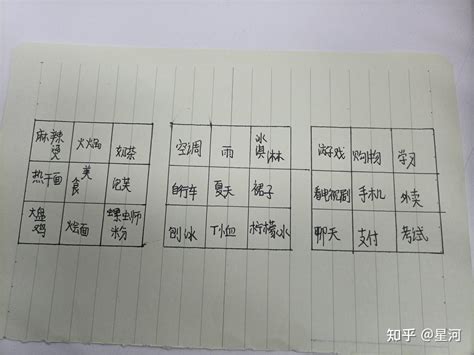 麻辣烫 火火锅 奶茶
热干面 美食 汜芙
大盘鸡 烩面 螺蛳粉
空调 雨 冰淇淋
自行车 夏天 裙子
刨冰 T恤 柠檬水
游戏 购物 学习
看电视剧 手机 外卖
聊天 支付 考试
知乎 @星河